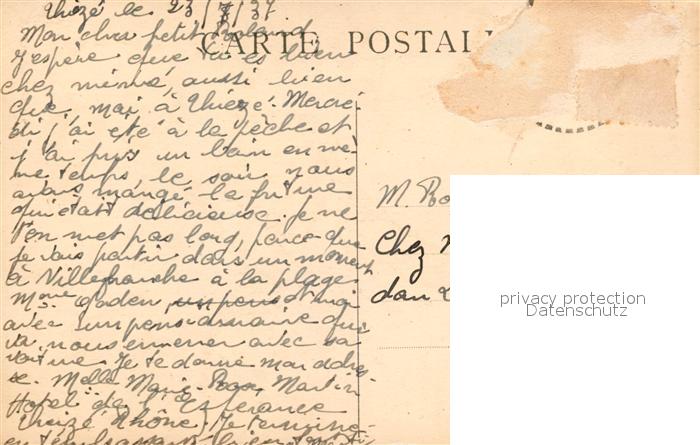 Thizé le 23/7/37
Mon cher petit Roland
CARTE POSTAL
J'espère que tu es bien
chez mimé, aussi bien
que moi à Thizé. Mercre-
di j'ai été à la pêche et
j'ai pris un bain en mê-
me temps, le soir nous
avons mangé la friture
qui était délicieuse. Je ne
t'en met pas long, parce que
je vais partir dans un moment
à Villefranche à la plage.
Mme Goden et moi
avec un pensionnaire qui
va nous emmener avec sa
voiture. Je te donne mon adres-
se. Melle Marie-Rose Martin
Hotel de l'Esperance
Theizé Rhône. Je termine
en t'embrassant bien
M. Ro
Chez
dans
privacy protection
Datenschutz